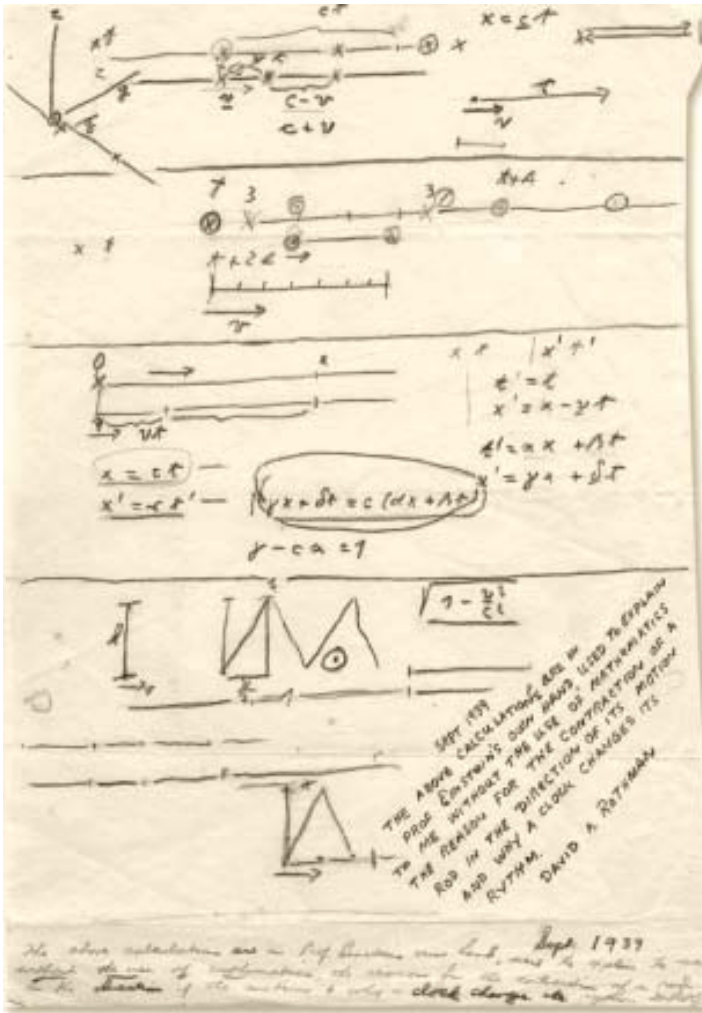 z
x t
c t
x
x = c t
y
v
c - v
c + v
v
3
3
x t
v
0
x
x t | x' t'
t' = t
x' = x - v t
v t
t' = αx + βt
x = c t
x' = γx + δt
x' = c t'
γx + δt = c (αx + βt)
γ - c α = 1
√1 - v²/c²
l
SEPT 1939
THE ABOVE CALCULATIONS ARE IN
PROF EINSTEIN'S OWN HAND USED TO EXPLAIN
TO ME WITHOUT THE USE OF MATHEMATICS
THE REASON FOR THE CONTRACTION OF A
ROD IN THE DIRECTION OF ITS MOTION
AND WAY A CLOCK CHANGES ITS
RYTHM.
DAVID A. ROTHMAN
Sept 1939
The above calculations are in Prof Einsteins own hand, used to explain to me
without the use of mathematics the reason for the contraction of a rod
in the direction of its motion & why a clock changes its